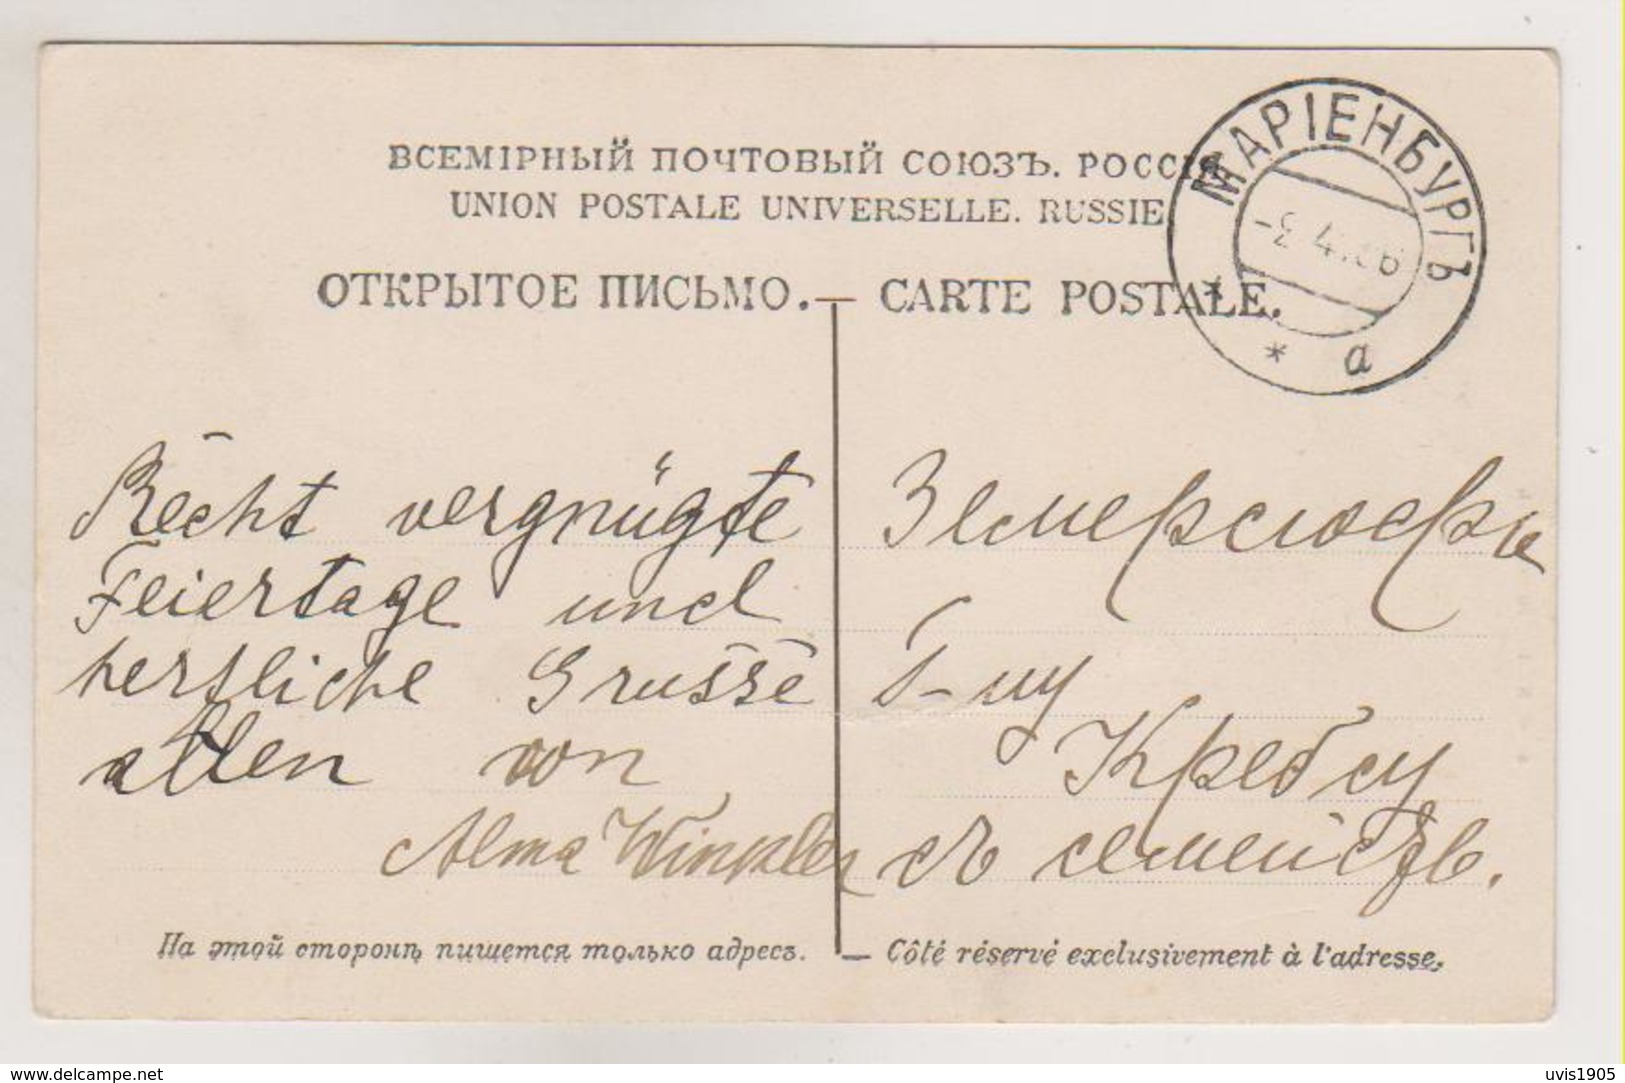 ВСЕМІРНЫЙ ПОЧТОВЫЙ СОЮЗЪ. РОССІЯ
UNION POSTALE UNIVERSELLE. RUSSIE
ОТКРЫТОЕ ПИСЬМО. — CARTE POSTALE.
МАРІЕНБУРГЪ
* а *
Recht vergnügte
Feiertage und
hertzliche Grusse
allen von
Alma Winkler
Г-ну
Кребсу
съ семействъ.
На этой сторонѣ пишется только адресъ. — Côté réservé exclusivement à l'adresse.
www.delcampe.net
uvis1905